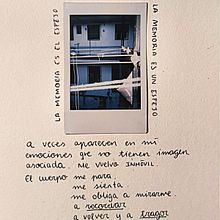 LA MEMORIA ES EL ESPEJO
LA MEMORIA ES UN ESPEJO
a veces aparecen en mi
emociones que no tienen imagen
asociada. Me vuelvo INMÓVIL
El cuerpo me para,
me sienta
me obliga a mirarme.
a recordar
a volver y a tragar